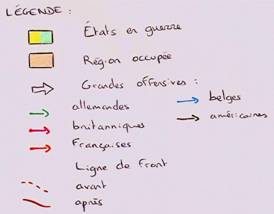 LÉGENDE :
États en guerre
Région occupée
Grandes offensives :
allemandes
britanniques
françaises
belges
américaines
Ligne de front
avant
après